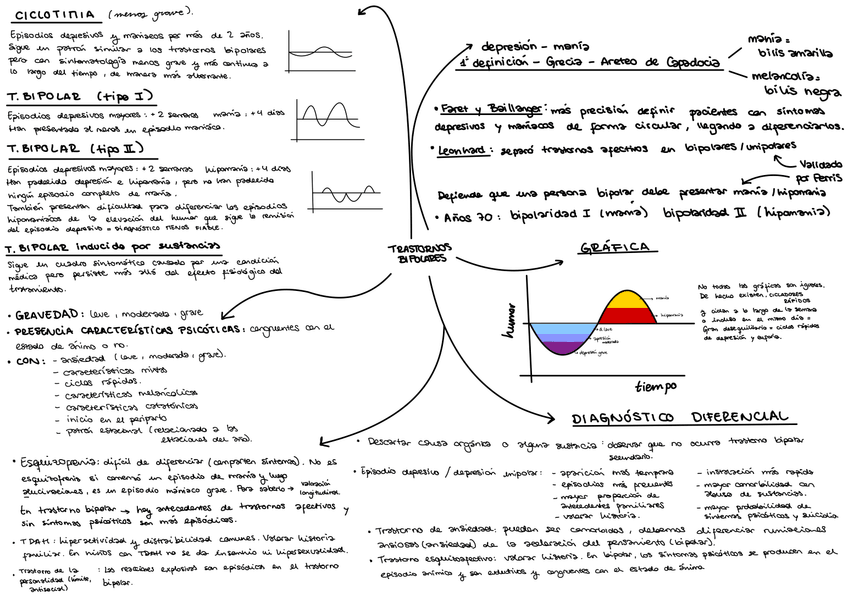 CICLOTIMIA (menos grave).
Episodios depresivos y maniacos por más de 2 años.
Sigue un patrón similar a los trastornos bipolares
pero con sintomatología menos grave y más continua a
lo largo del tiempo, de manera más alternante.
T. BIPOLAR (tipo I)
Episodios depresivos mayores: +2 semanas manía: +4 días
Han presentado al menos un episodio maníaco.
T. BIPOLAR (tipo II)
Episodios depresivos mayores: +2 semanas hipomanía: +4 días
Han padecido depresión e hipomanía, pero no han padecido
ningún episodio completo de manía.
También presentan dificultad para diferenciar los episodios
hipomaníacos de la elevación del humor que sigue la remisión
del episodio depresivo = DIAGNÓSTICO MENOS FIABLE.
T. BIPOLAR inducido por sustancias
Sigue un cuadro sintomático causado por una condición
médica pero persiste más allá del efecto fisiológico del
tratamiento.
• GRAVEDAD: leve, moderada, grave
• PRESENCIA CARACTERÍSTICAS PSICÓTICAS: congruentes con el
estado de ánimo o no.
• CON: - ansiedad (leve, moderada, grave).
- características mixtas
- ciclos rápidos.
- características melancólicas
- características catatónicas
- inicio en el periparto
- patrón estacional (relacionado a las
estaciones del año).
TRASTORNOS
BIPOLARES
depresión - manía
1ª definición - Grecia - Areteo de Capadocia
manía =
bilis amarilla
melancolía =
bilis negra
• Faret y Baillanger: más precisión definir pacientes con síntomas
depresivos y maníacos de forma circular, llegando a diferenciarlos.
• Leonhard: separó trastornos afectivos en bipolares/unipolares
Validado
por Perris
Defiende que una persona bipolar debe presentar manía/hipomanía
• Años 70: bipolaridad I (manía) bipolaridad II (hipomanía)
GRÁFICA
humor
tiempo
manía
hipomanía
d. leve
depresión
moderada
depresión grave
No todas las gráficas son iguales.
De hecho existen, cicladores
rápidos
y ciclan a lo largo de la semana
o incluso en el mismo día =
Gran desequilibrio = ciclos rápidos
de depresión y euforia.
DIAGNÓSTICO DIFERENCIAL
• Descartar causa orgánica o alguna sustancia: observar que no ocurra trastorno bipolar
secundario.
• Episodio depresivo / depresión unipolar: - aparición más temprana
- episodios más frecuentes
- mayor proporción de
antecedentes familiares
- valorar historia.
- instalación más rápida
- mayor comorbilidad con
abuso de sustancias.
- mayor probabilidad de
síntomas psicóticos y suicidio
• Trastorno de ansiedad: pueden ser comórbidos, debemos diferenciar rumiaciones
ansiosas (ansiedad) de la aceleración del pensamiento (bipolar).
• Trastorno esquizoafectivo: valorar historia. En bipolar, los síntomas psicóticos se producen en el
episodio anímico y son y congruentes con el estado de ánimo.
• Esquizofrenia: difícil de diferenciar (comparten síntomas). No es
esquizofrenia si comenzó un episodio de manía y luego
alucinaciones, es un episodio maníaco grave. Para saberlo → valoración
longitudinal.
En trastorno bipolar → hay antecedentes de trastornos afectivos y
sin síntomas psicóticos son más episódicos.
• TDAH: hiperactividad y distraibilidad comunes. Valorar historia
familiar. En niños con TDAH no se da insomnio ni hipersexualidad.
• Trastorno de la : Las reacciones explosivas son episódicas en el trastorno
personalidad (límite, bipolar.
antisocial)